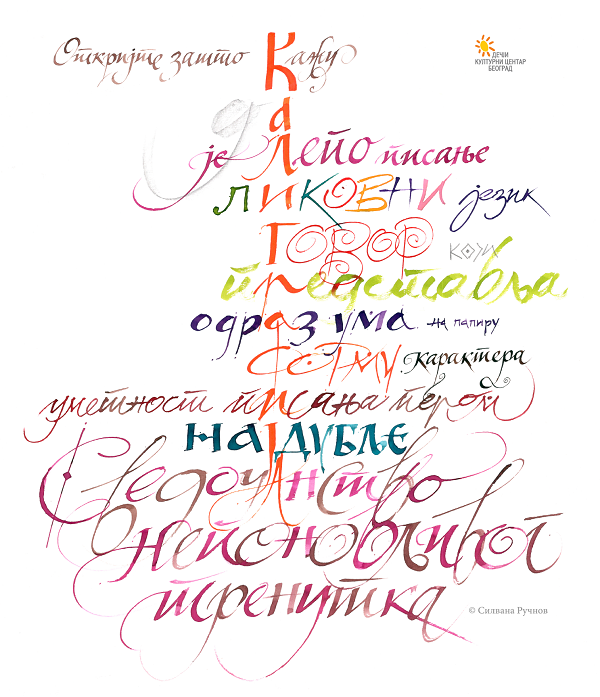 Откријте зашто Кажу
да
је лепо писање
ЛИКОВНИ језик
ГОВОР који
представља
одраз ума на папиру
форму карактера
уметности писања пером
најдубље
Сведочанство
Непоновљивог
тренутка
ДЕЧЈИ
КУЛТУРНИ ЦЕНТАР
БЕОГРАД
© Силвана Ручнов